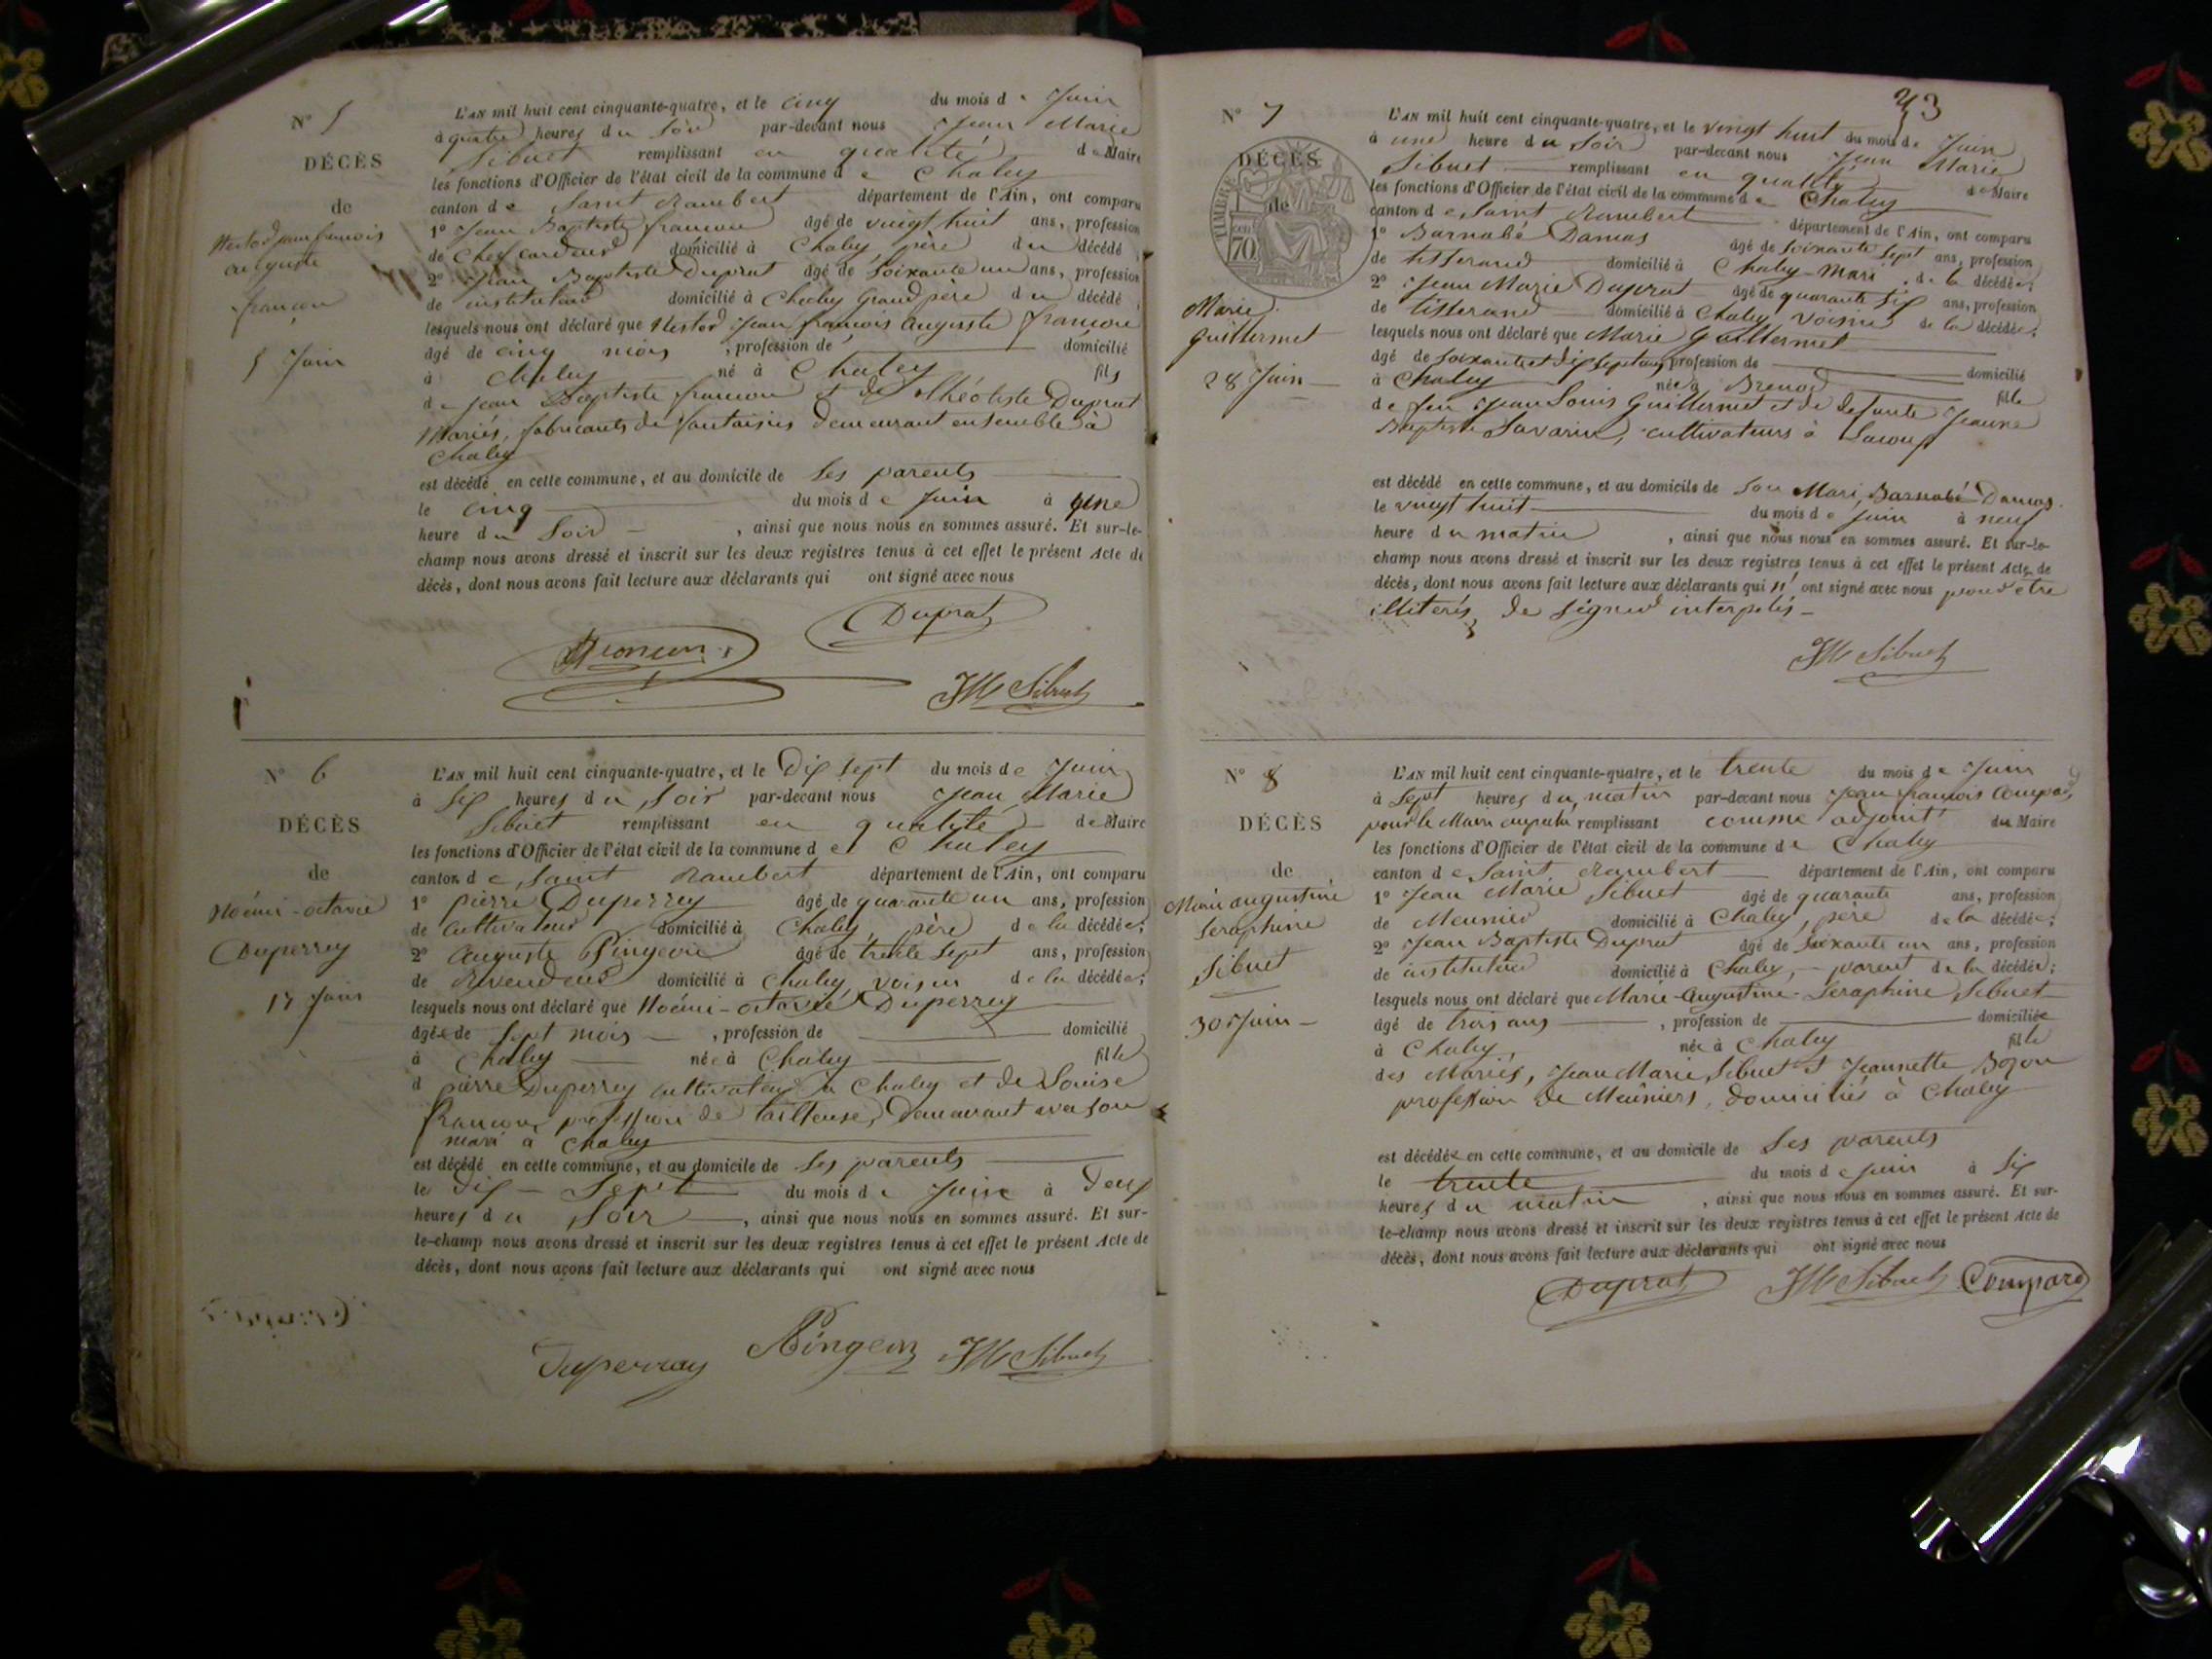 N° 5
DÉCÈS
de
Nestor jean francois
auguste
francon
5 Juin
L'AN mil huit cent cinquante-quatre, et le cinq du mois de Juin
à quatre heures du soir par-devant nous Jean Marie
Sibuet remplissant en qualité de Maire
les fonctions d'Officier de l'état civil de la commune de Chaley
canton de Saint Rambert département de l'Ain, ont comparu
1° Jean Baptiste francon âgé de vingt huit ans, profession
de Chef cardeur domicilié à Chaley, père du décédé
2° Jean Baptiste Duprat âgé de soixante un ans, profession
de instituteur domicilié à Chaley Grand père du décédé
lesquels nous ont déclaré que Nestor Jean francois Auguste francon
âgé de cinq mois, profession de domicilié
à Chaley né à Chaley fils
de jean Baptiste francon et de Duprat
Mariés, fabricants de fantaisies demeurant ensemble à
Chaley
est décédé en cette commune, et au domicile de ses parents
le cinq du mois de Juin à une
heure du soir, ainsi que nous nous en sommes assuré. Et sur-le-
champ nous avons dressé et inscrit sur les deux registres tenus à cet effet le présent Acte de
décès, dont nous avons fait lecture aux déclarants qui ont signé avec nous
Duprat
JM Sibuet
N° 6
DÉCÈS
de
Noémi-octavie
Duperrey
17 Juin
L'AN mil huit cent cinquante-quatre, et le Dix sept du mois de Juin
à Six heures du soir par-devant nous Jean Marie
Sibuet remplissant en qualité de Maire
les fonctions d'Officier de l'état civil de la commune de Chaley
canton de Saint Rambert département de l'Ain, ont comparu
1° pierre Duperrey âgé de quarante un ans, profession
de Cultivateur domicilié à Chaley, père de la décédée;
2° Auguste Pingeon âgé de trente sept ans, profession
de Revendeur domicilié à Chaley voisin de la décédée;
lesquels nous ont déclaré que Noémi-octavie Duperrey
âgée de sept mois, profession de domicilié
à Chaley née à Chaley fille
d pierre Duperrey cultivateur à Chaley et de Louise
francon, profession de tailleuse, demeurant avec son
mari à Chaley
est décédé en cette commune, et au domicile de ses parents
le dix-Sept du mois de Juin à Deux
heures du Soir, ainsi que nous nous en sommes assuré. Et sur-
le-champ nous avons dressé et inscrit sur les deux registres tenus à cet effet le présent Acte de
décès, dont nous avons fait lecture aux déclarants qui ont signé avec nous
Duperray Pingeon JM Sibuet
N° 7
DÉCÈS
de
TIMBRE
70
Marie
Guillermet
28 Juin
L'AN mil huit cent cinquante-quatre, et le vingt huit du mois de Juin
à une heure du soir par-devant nous Jean Marie
Sibuet remplissant en qualité de Maire
les fonctions d'Officier de l'état civil de la commune de Chaley
canton de Saint Rambert département de l'Ain, ont comparu
1° Barnabé Damas âgé de soixante sept ans, profession
de tisserand domicilié à Chaley-Mari de la décédée;
2° Jean Marie Duprat âgé de quarante six ans, profession
de tisserand domicilié à Chaley voisin de la décédée;
lesquels nous ont déclaré que Marie Guillermet
âgé de soixante et dix sept ans, profession de domicilié
à Chaley née à Brenod fille
de feu Jean Louis Guillermet et de defunte Jeanne
Baptiste Savarin, cultivateurs à
est décédé en cette commune, et au domicile de son Mari, Barnabé Damas.
le vingt huit du mois de Juin à neuf
heure du matin, ainsi que nous nous en sommes assuré. Et sur-le-
champ nous avons dressé et inscrit sur les deux registres tenus à cet effet le présent Acte de
décès, dont nous avons fait lecture aux déclarants qui n' ont signé avec nous pour être
illiterés de signer interpelés
JM Sibuet
N° 8
DÉCÈS
de
Marie augustine
Seraphine
Sibuet
30 Juin
L'AN mil huit cent cinquante-quatre, et le trente du mois de Juin
à Sept heures du matin par-devant nous Jean francois
pour le Maire remplissant comme adjoint du Maire
les fonctions d'Officier de l'état civil de la commune de Chaley
canton de Saint Rambert département de l'Ain, ont comparu
1° Jean Marie Sibuet âgé de quarante ans, profession
de Meunier domicilié à Chaley, père de la décédée;
2° Jean Baptiste Duprat âgé de soixante un ans, profession
de instituteur domicilié à Chaley, parent de la décédée;
lesquels nous ont déclaré que Marie-Augustine-Seraphine Sibuet
âgé de trois ans, profession de domiciliée
à Chaley, née à Chaley fille
des Mariés, Jean Marie Sibuet et Jeannette Bozon
profession de Meûniers, domiciliés à Chaley
est décédée en cette commune, et au domicile de Ses parents
le trente du mois de Juin à Six
heures du matin, ainsi que nous nous en sommes assuré. Et sur-
le-champ nous avons dressé et inscrit sur les deux registres tenus à cet effet le présent Acte de
décès, dont nous avons fait lecture aux déclarants qui ont signé avec nous
Duprat JM Sibuet Compard